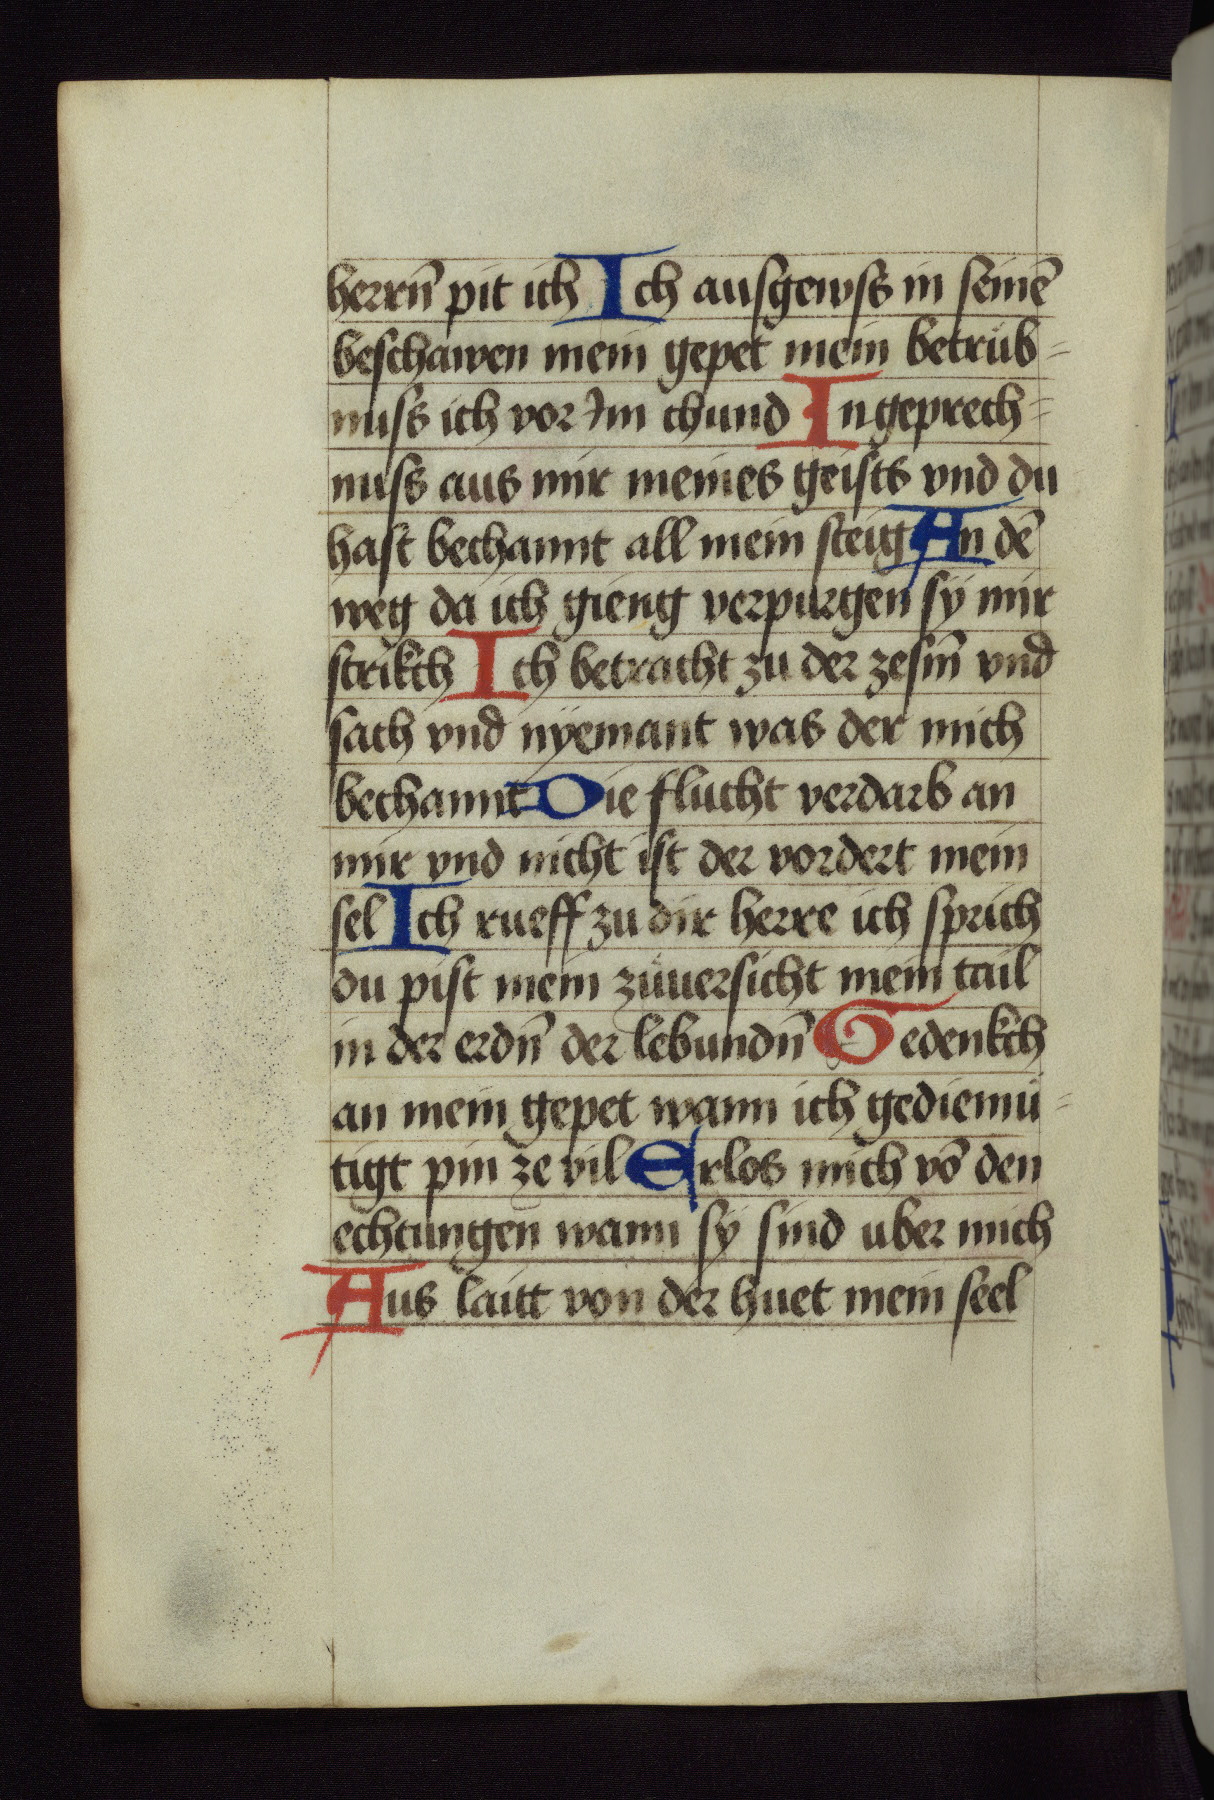 herrn̄ pit ich Ich ausgewss in seinē
beschawen mein gepet mein betrüb=
nuss ich vor Im chund In geprech=
nuss aus mir meines geists vnd du
hast bechannt all mein steig An dē
weg da ich gieng verpurgen sÿ mir
strikch Ich betracht zu der zesm̄ vnd
sach vnd nÿemant was der mich
bechannt Die flucht verdarb an
mir vnd nicht ist der vordert mein
sel Ich rueff zu dir herre ich sprich
du pist mein züuersicht mein tail
in der erdn̄ der lebundn̄ Gedenkch
an mein gepet wann ich gediemü=
tigt pin ze vil Erlos mich vō den
echtungen wann sÿ sind uber mich
Aus laitt von der huet mein seel